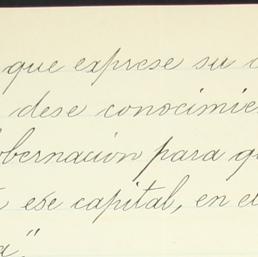 que exprese su
dese conocimie
obernación para q
ese capital, en e
a".